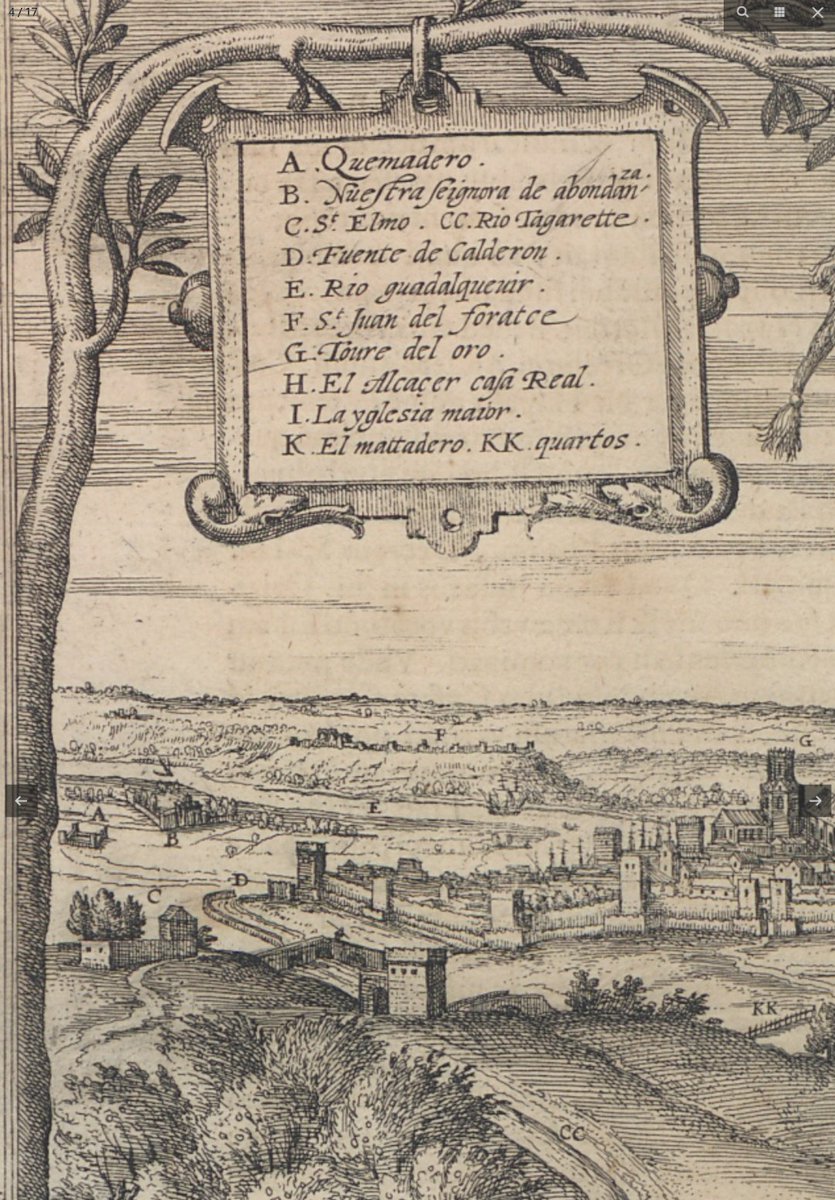 4 / 17
A .Quemadero .
B. Nüestra seignora de abondanza.
C. St. Elmo . CC. Rio Tagarette .
D. Fuente de Calderon .
E. Rio guadalqueuir .
F. St. Juan del foratce
G. Toure del oro .
H. El Alcaçer casa Real .
I. La yglesia maior .
K .El mattadero . KK quartos .
F
G
E
A
B
D
C
KK
CC